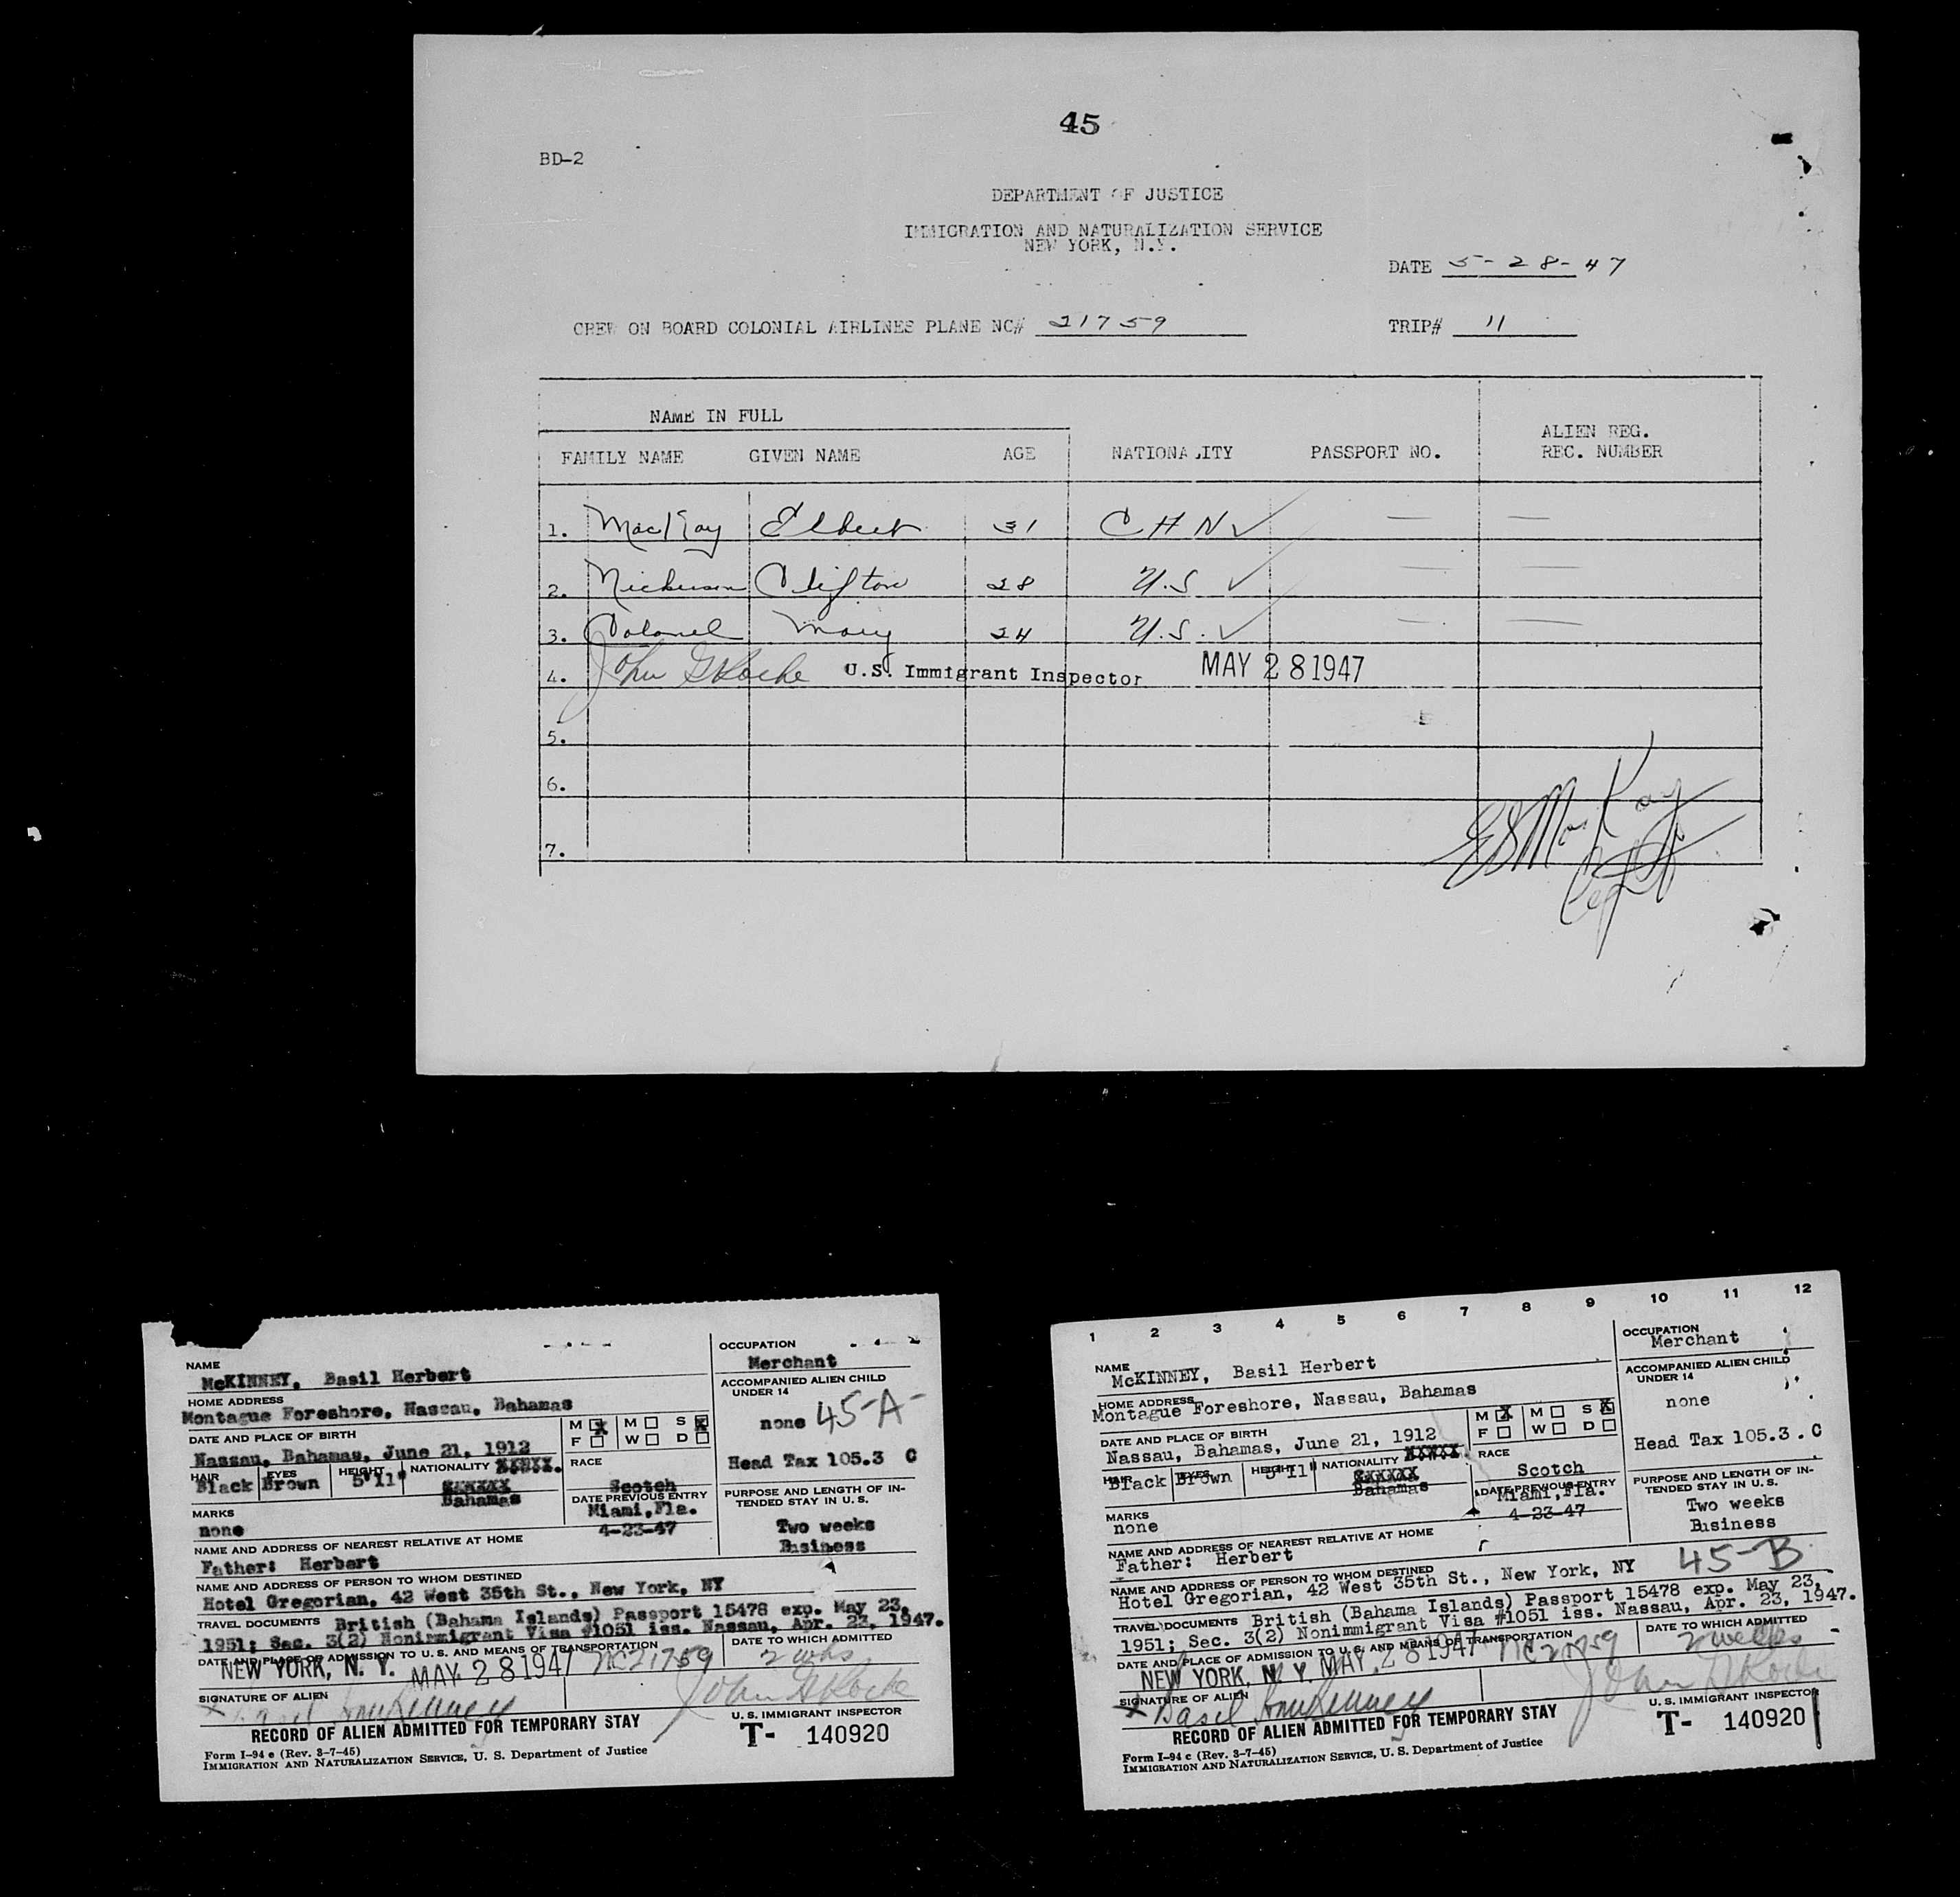 45
BD-2
DEPARTMENT OF JUSTICE
IMMIGRATION AND NATURALIZATION SERVICE
NEW YORK, N.Y.
DATE 5-28-47
CREW ON BOARD COLONIAL AIRLINES PLANE NC# 21759 TRIP# 11
NAME IN FULL
FAMILY NAME GIVEN NAME AGE NATIONALITY PASSPORT NO. ALIEN REG. REC. NUMBER
1. MacKay Elbert 31 CHN ✓ — —
2. Nickerson Clifton 28 U.S ✓ — —
3. Colonel Mary 24 U.S. ✓ — —
4. John G Rocke U.S. Immigrant Inspector MAY 28 1947
5.
6.
7.
ESMacKay
Capt
NAME
McKINNEY, Basil Herbert
OCCUPATION
Merchant
HOME ADDRESS
Montague Foreshore, Nassau, Bahamas
ACCOMPANIED ALIEN CHILD UNDER 14
none 45-A
DATE AND PLACE OF BIRTH
Nassau, Bahamas, June 21, 1912
M X M S X
F W D
Head Tax 105.3 C
HAIR Black EYES Brown HEIGHT 5'11" NATIONALITY
Bahamas
RACE
Scotch
MARKS
none
DATE PREVIOUS ENTRY
Miami, Fla.
4-23-47
PURPOSE AND LENGTH OF INTENDED STAY IN U. S.
Two weeks
Business
NAME AND ADDRESS OF NEAREST RELATIVE AT HOME
Father: Herbert
NAME AND ADDRESS OF PERSON TO WHOM DESTINED
Hotel Gregorian, 42 West 35th St., New York, NY
TRAVEL DOCUMENTS British (Bahama Islands) Passport 15478 exp. May 23,
1951; Sec. 3(2) Nonimmigrant Visa #1051 iss. Nassau, Apr. 23, 1947.
DATE AND PLACE OF ADMISSION TO U. S. AND MEANS OF TRANSPORTATION
NEW YORK, N. Y. MAY 28 1947 NC21759
DATE TO WHICH ADMITTED
2 wks
SIGNATURE OF ALIEN
x Basil McKinney
John G Rocke
U. S. IMMIGRANT INSPECTOR
RECORD OF ALIEN ADMITTED FOR TEMPORARY STAY
T- 140920
Form I-94 e (Rev. 3-7-45)
IMMIGRATION AND NATURALIZATION SERVICE, U. S. Department of Justice
1 2 3 4 5 6 7 8 9 10 11 12
NAME
McKINNEY, Basil Herbert
OCCUPATION
Merchant
HOME ADDRESS
Montague Foreshore, Nassau, Bahamas
ACCOMPANIED ALIEN CHILD UNDER 14
none
DATE AND PLACE OF BIRTH
Nassau, Bahamas, June 21, 1912
M X M S X
F W D
Head Tax 105.3. C
HAIR Black EYES Brown HEIGHT 5'11" NATIONALITY
Bahamas
RACE
Scotch
MARKS
none
DATE PREVIOUS ENTRY
Miami, Fla.
4-23-47
PURPOSE AND LENGTH OF INTENDED STAY IN U. S.
Two weeks
Business
NAME AND ADDRESS OF NEAREST RELATIVE AT HOME
Father: Herbert
45-B
NAME AND ADDRESS OF PERSON TO WHOM DESTINED
Hotel Gregorian, 42 West 35th St., New York, NY
TRAVEL DOCUMENTS British (Bahama Islands) Passport 15478 exp. May 23,
1951; Sec. 3(2) Nonimmigrant Visa #1051 iss. Nassau, Apr. 23, 1947.
DATE AND PLACE OF ADMISSION TO U. S. AND MEANS OF TRANSPORTATION
NEW YORK, N. Y. MAY 28 1947 NC21759
DATE TO WHICH ADMITTED
2 weeks
SIGNATURE OF ALIEN
x Basil McKinney
John G Rocke
U. S. IMMIGRANT INSPECTOR
RECORD OF ALIEN ADMITTED FOR TEMPORARY STAY
T- 140920
Form I-94 c (Rev. 3-7-45)
IMMIGRATION AND NATURALIZATION SERVICE, U. S. Department of Justice